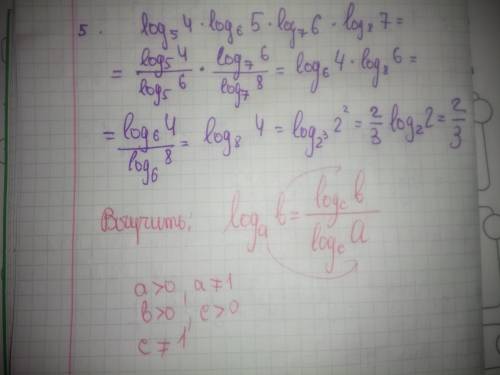 5. log₅4 · log₆5 · log₇6 · log₈7 =
= log₅4 / log₅6 · log₇6 / log₇8 = log₆4 · log₈6 =
= log₆4 / log₆8 = log₈4 = log₂³2² = 2/3 log₂2 = 2/3
Выучить: logₐb = log_c b / log_c a
a>0, a≠1
b>0, c>0
c≠1